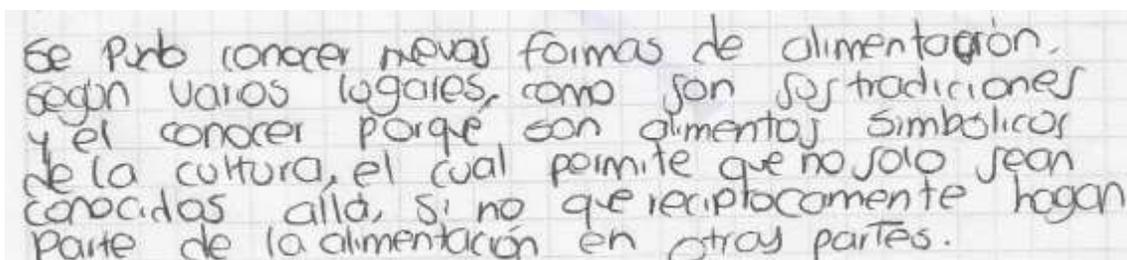 Se Pudo conocer nuevas formas de alimentación.
según varios lugares, como son sus tradiciones
y el conocer porqué son alimentos simbolicos
de la cultura, el cual permite que no solo sean
conocidos allá, si no que reciplocamente hagan
parte de la alimentación en otras partes.